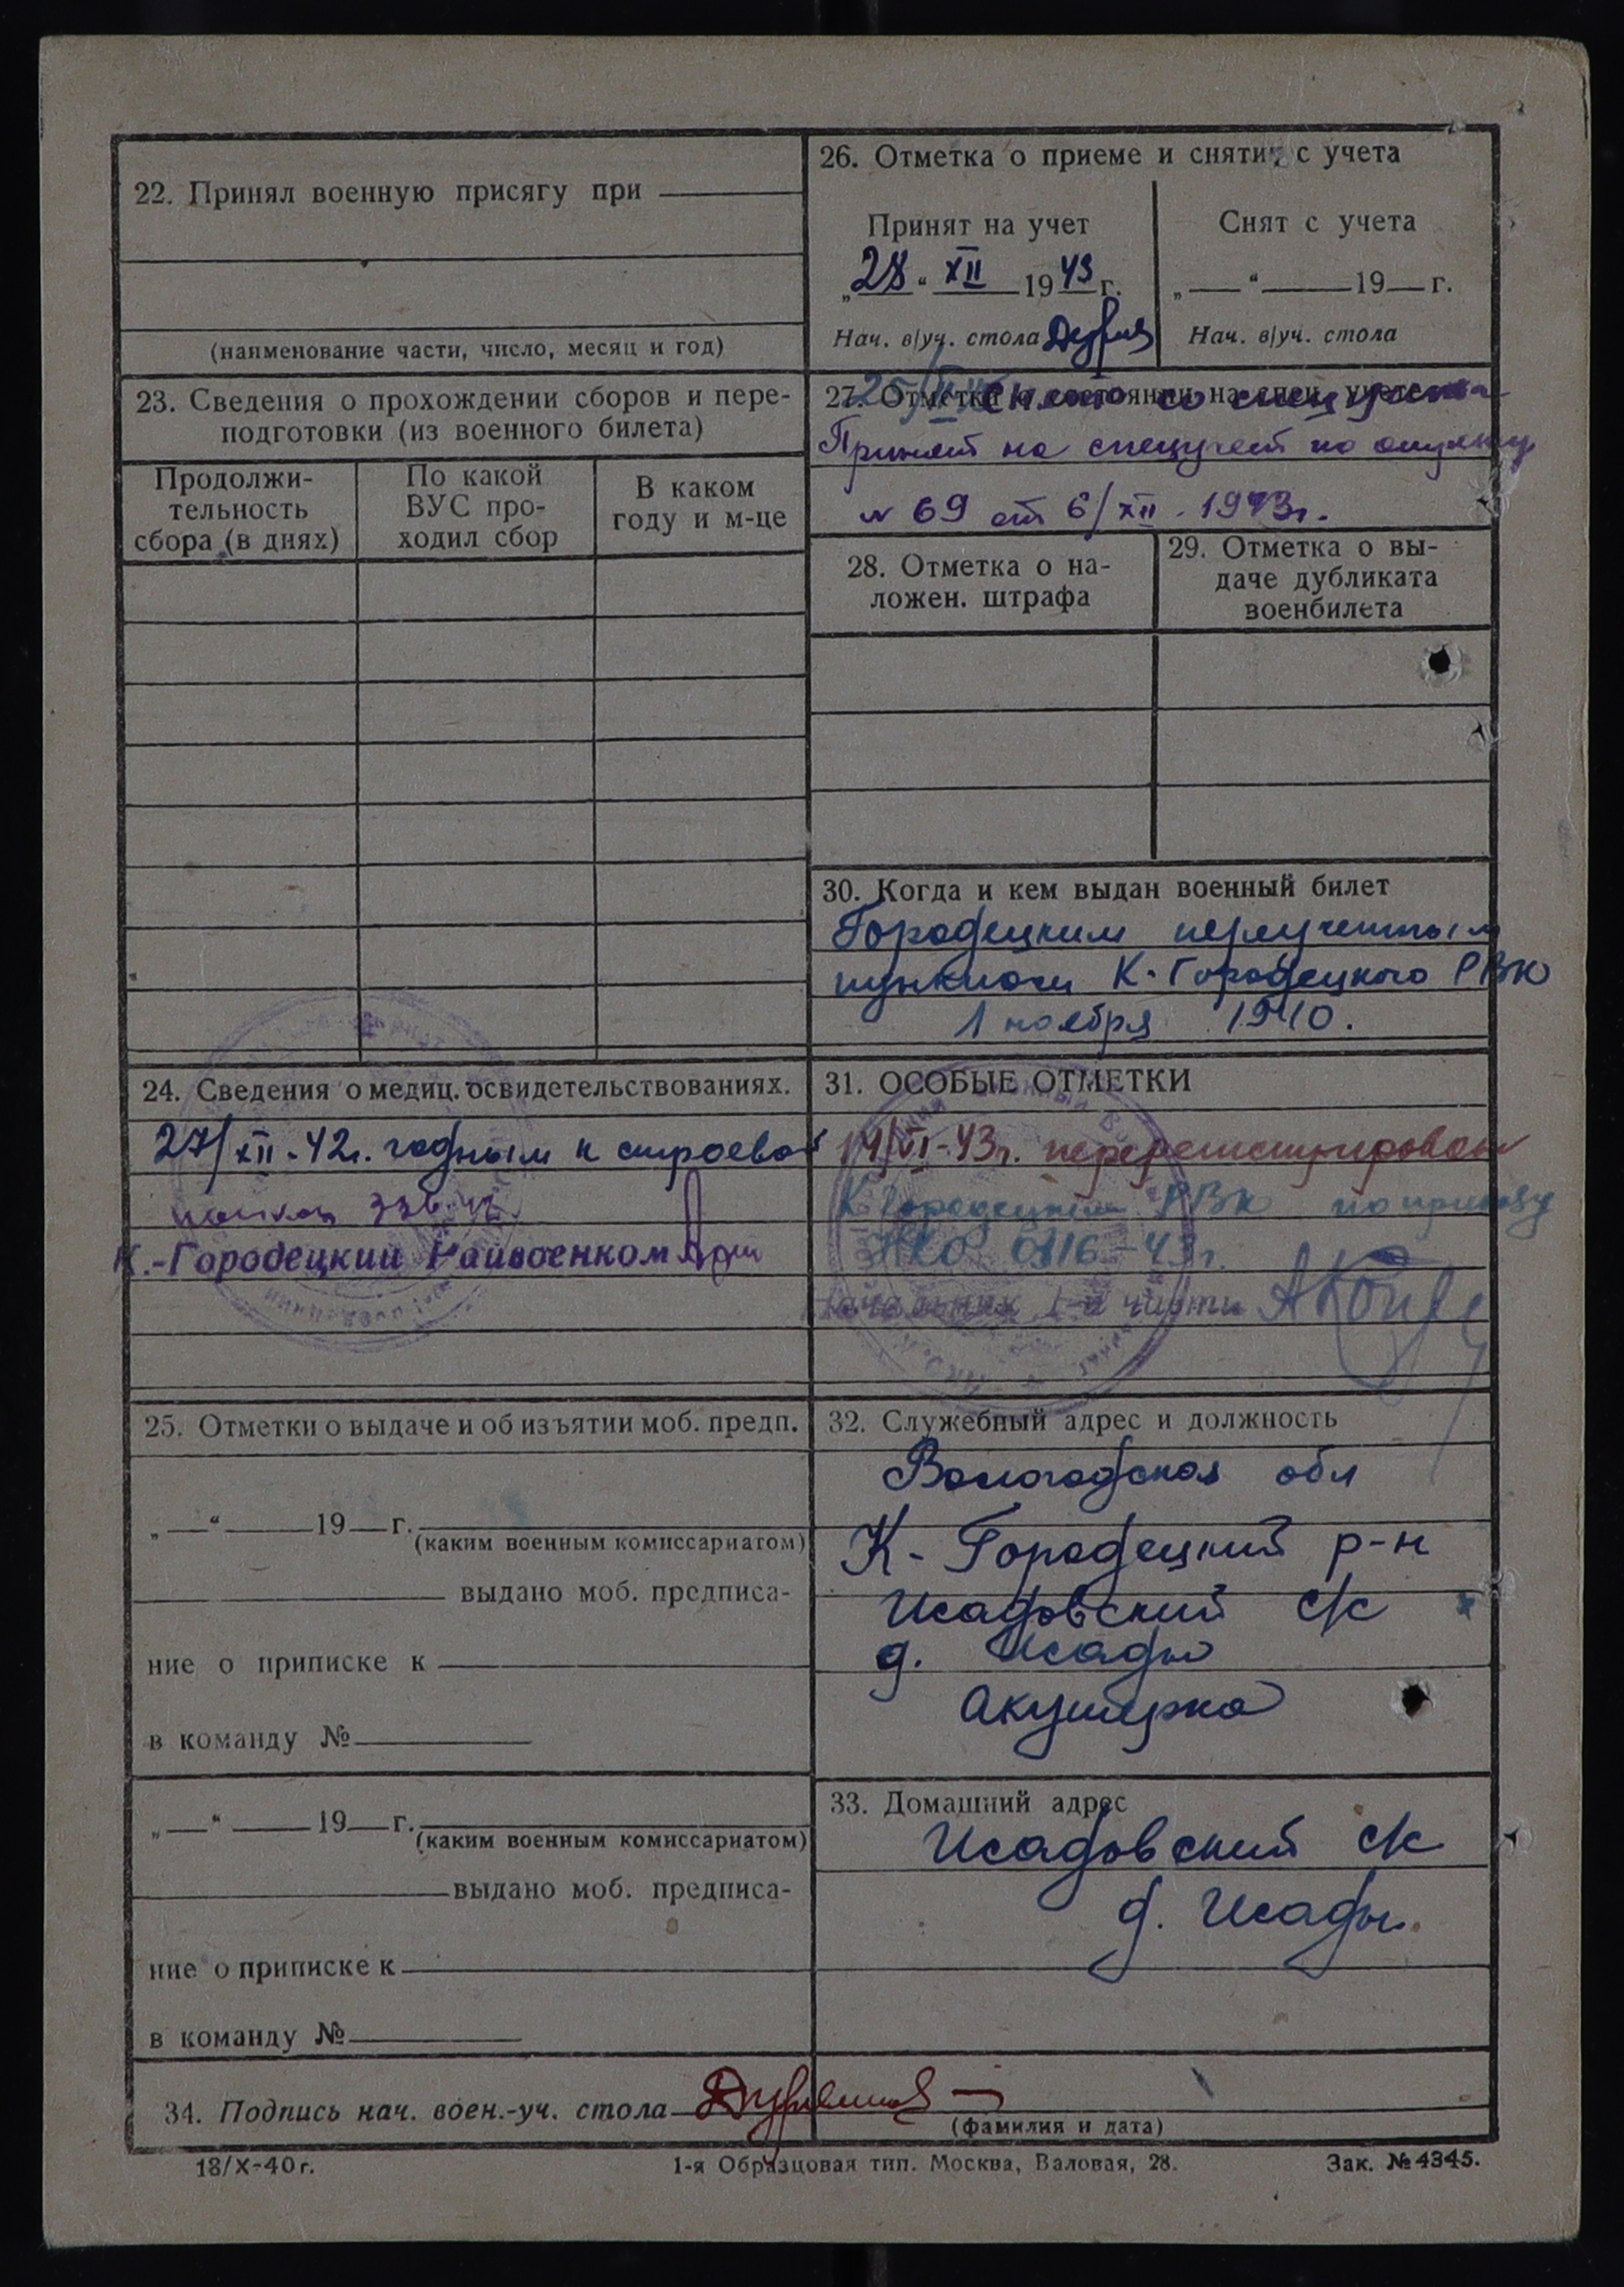 22. Принял военную присягу при
(наименование части, число, месяц и год)
23. Сведения о прохождении сборов и пере-
подготовки (из военного билета)
Продолжи-
тельность
сбора (в днях)
По какой
ВУС про-
ходил сбор
В каком
году и м-це
24. Сведения о медиц. освидетельствованиях.
27/XII-42г. годным к строевой
К.-Городецкий Райвоенком
25. Отметки о выдаче и об изъятии моб. предп.
„ — “ — 19 — г.
(каким военным комиссариатом)
выдано моб. предписа-
ние о приписке к
в команду №
„ — “ — 19 — г.
(каким военным комиссариатом)
выдано моб. предписа-
ние о приписке к
в команду №
26. Отметка о приеме и снятии с учета
Принят на учет
„28“ XII 1943 г.
Нач. в/уч. стола
Снят с учета
„ — “ — 19 — г.
Нач. в/уч. стола
27. Отметки о состоянии на спец. учете
Снят со спецучета
Принят на спецучет по
№ 69 от 6/XII-1943г.
28. Отметка о на-
ложен. штрафа
29. Отметка о вы-
даче дубликата
военбилета
30. Когда и кем выдан военный билет
Городецким
пунктом К-Городецкого РВК
1 ноября 1940.
31. ОСОБЫЕ ОТМЕТКИ
14/VI-43г. перерегистрирован
К Городецким РВК по приказу
НКО 0116-43г.
Начальник 1-й части
32. Служебный адрес и должность
Вологодская обл
К-Городецкий р-н
Исадовский с/с
д. Исады
Акушерка
33. Домашний адрес
Исадовский с/с
д. Исады.
34. Подпись нач. воен.-уч. стола
(фамилия и дата)
18/X-40 г.
1-я Образцовая тип. Москва, Валовая, 28.
Зак. № 4345.